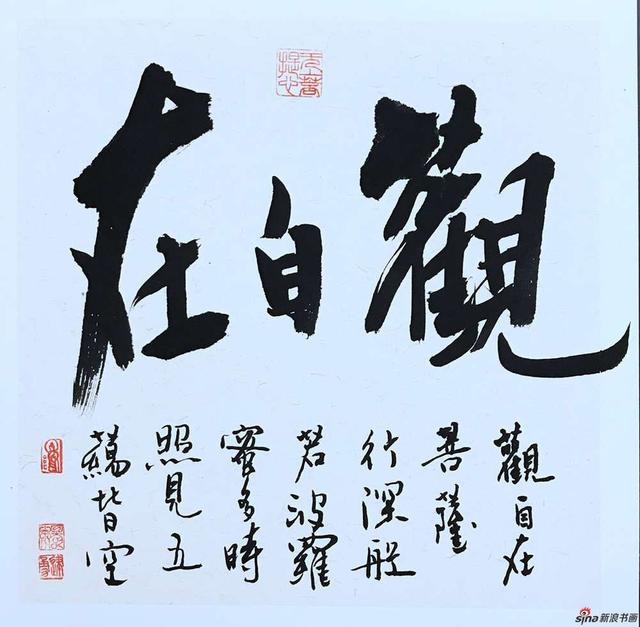 觀自在
觀自在
菩薩
行深般
若波羅
蜜多時
照見五
蘊皆空
sina 新浪书画